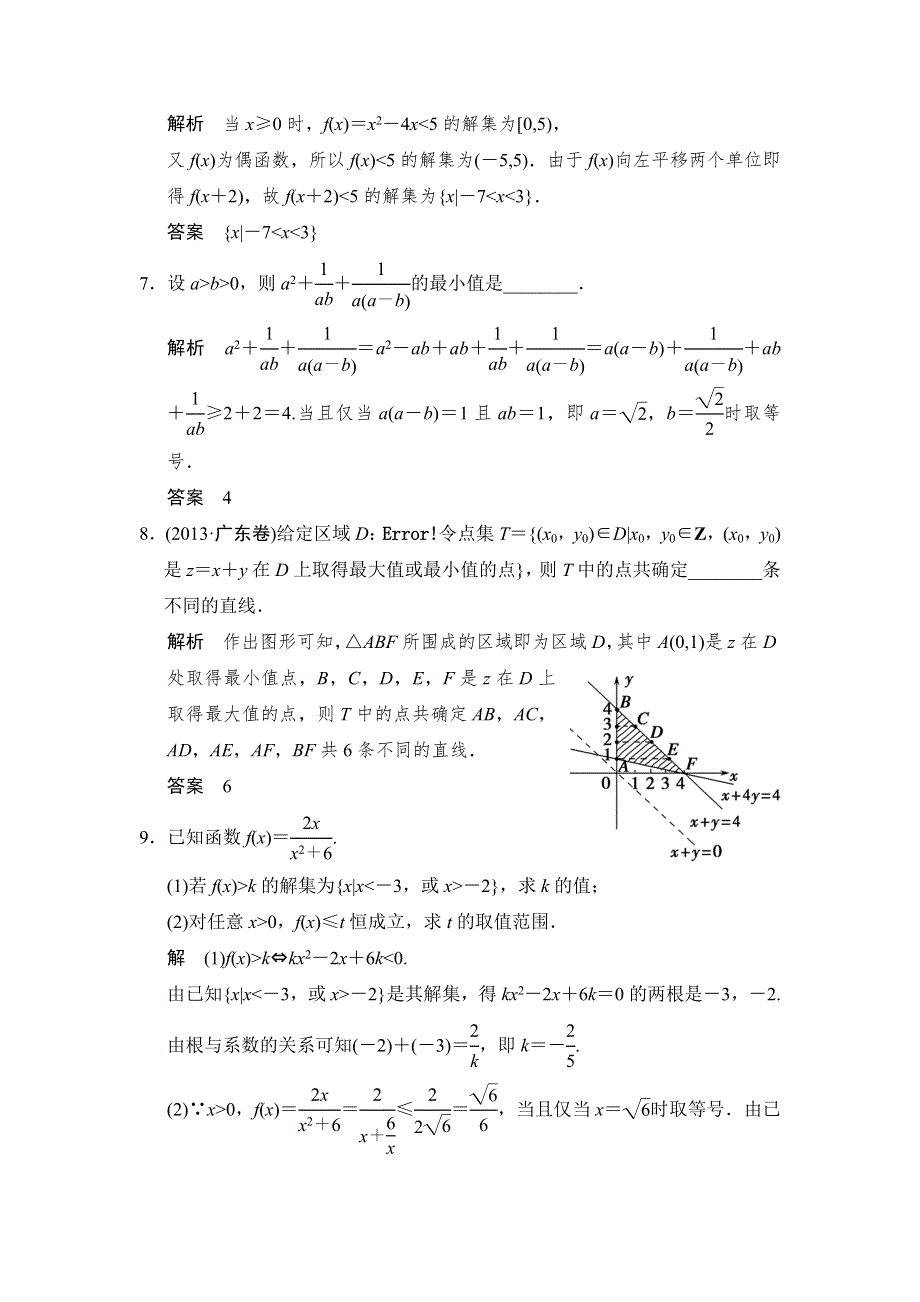 解析 当 x≥0 时，f(x)＝x²－4x<5 的解集为[0,5)，
又 f(x)为偶函数，所以 f(x)<5 的解集为(－5,5)．由于 f(x)向左平移两个单位即
得 f(x＋2)，故 f(x＋2)<5 的解集为{x|－7<x<3}．
答案 {x|－7<x<3}
7．设 a>b>0，则 a²＋1/ab＋1/a(a－b)的最小值是________．
解析 a²＋1/ab＋1/a(a－b)＝a²－ab＋ab＋1/ab＋1/a(a－b)＝a(a－b)＋1/a(a－b)＋ab
＋1/ab≥2＋2＝4.当且仅当 a(a－b)＝1 且 ab＝1，即 a＝√2，b＝√2/2时取等
号．
答案 4
8．(2013·广东卷)给定区域 D：Error!令点集 T＝{(x₀，y₀)∈D|x₀，y₀∈Z，(x₀，y₀)
是 z＝x＋y 在 D 上取得最大值或最小值的点}，则 T 中的点共确定________条
不同的直线．
解析 作出图形可知，△ABF 所围成的区域即为区域 D，其中 A(0,1)是 z 在 D
处取得最小值点，B，C，D，E，F 是 z 在 D 上
取得最大值的点，则 T 中的点共确定 AB，AC，
AD，AE，AF，BF 共 6 条不同的直线．
答案 6
y
4 B
3 C
2 D
1 E
A F
0 1 2 3 4 x
x+4y=4
x+y=4
x+y=0
9．已知函数 f(x)＝2x/x²＋6.
(1)若 f(x)>k 的解集为{x|x<－3，或 x>－2}，求 k 的值；
(2)对任意 x>0，f(x)≤t 恒成立，求 t 的取值范围．
解 (1)f(x)>k⇔kx²－2x＋6k<0.
由已知{x|x<－3，或 x>－2}是其解集，得 kx²－2x＋6k＝0 的两根是－3，－2.
由根与系数的关系可知(－2)＋(－3)＝2/k，即 k＝－2/5.
(2)∵x>0，f(x)＝2x/x²＋6＝2/x＋6/x≤2/2√6＝√6/6，当且仅当 x＝√6时取等号．由已